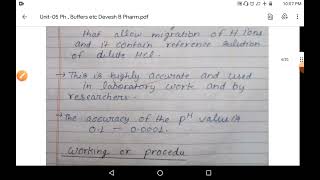 10:07 PM
Unit-05 Ph , Buffers etc Devesh B Pharm.pdf
that allow migration of H ions
and it contain reference solution
of dilute HCl.
→ This is highly accurate and used
in laboratory work and by
researchers.
→ The accuracy of the pH value is
0.1 — 0.0001.
Working or procedu